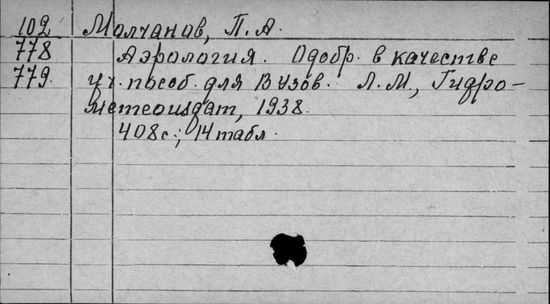 102 Молчанов, П. А.
778 Аэрология. Одобр. в качестве
779. уч. пособ. для Вузов. Л. М., Гидро-
метеоиздат, 1938.
408 с.; 14 табл.